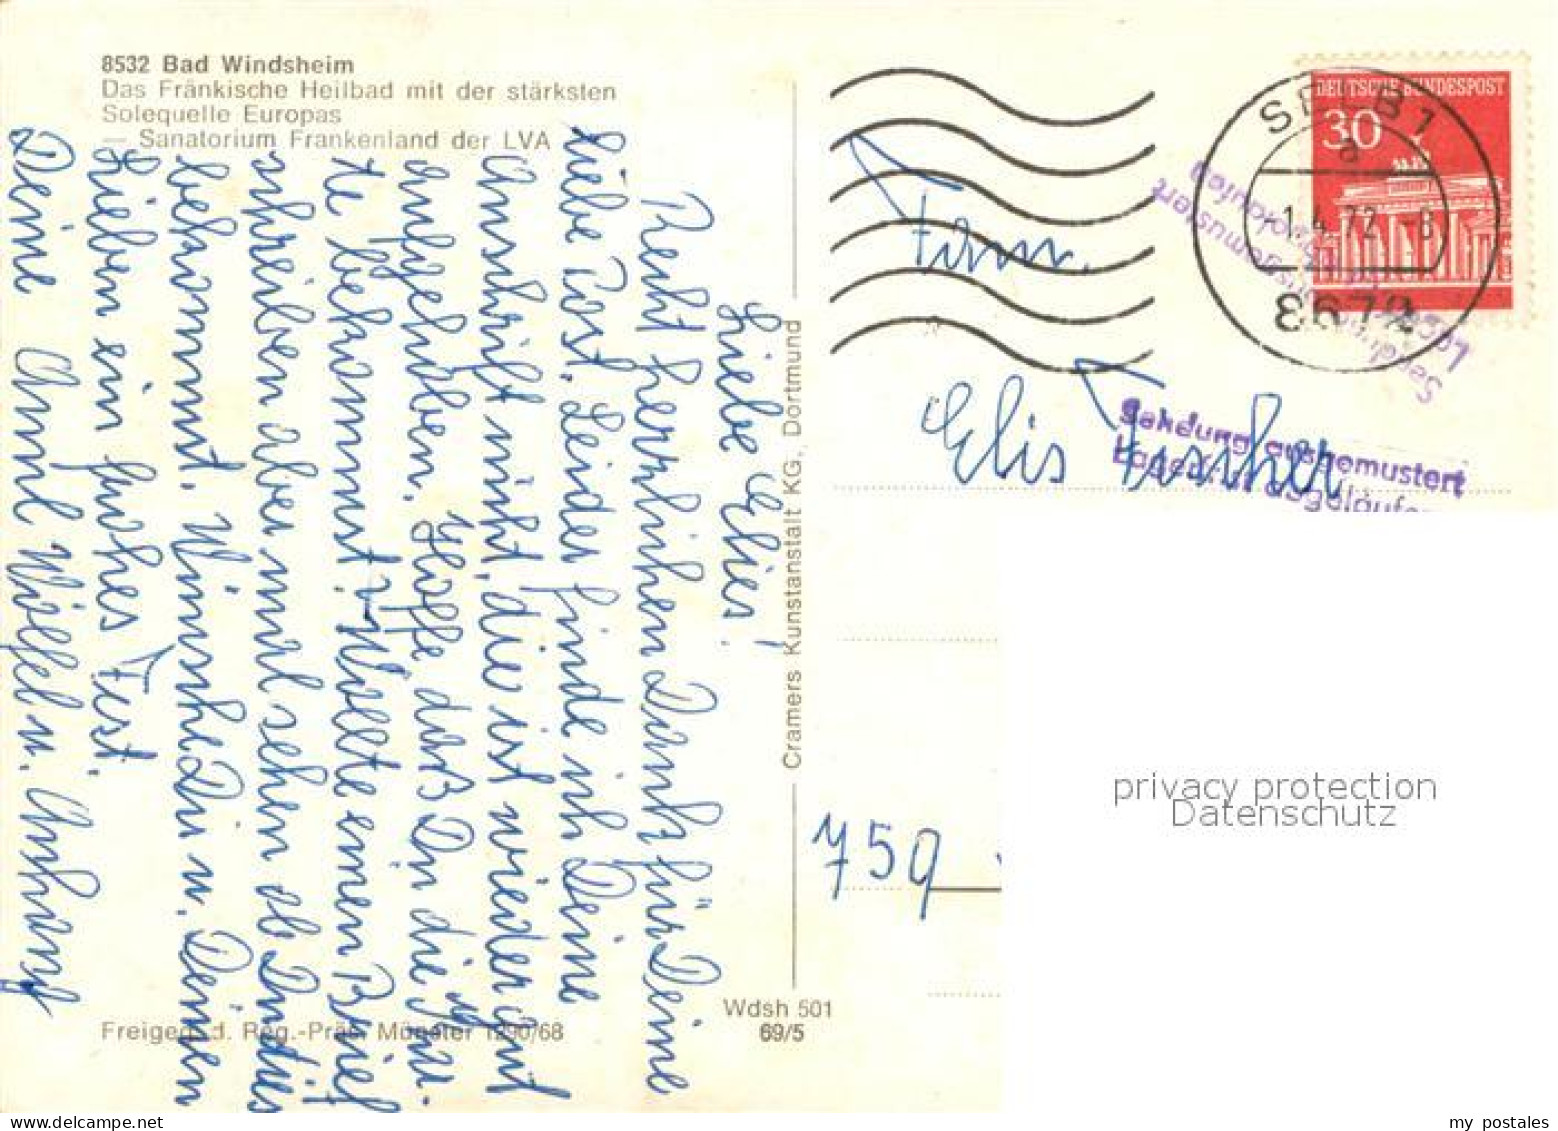 8532 Bad Windsheim
Das Fränkische Heilbad mit der stärksten
Solequelle Europas
— Sanatorium Frankenland der LVA
Liebe Elies!
Recht herzlichen Dank für Deine
liebe Post. Leider finde ich Deine
Anschrift nicht, die ist wieder gut
aufgehoben. Hoffe daß Du die
te bekommst. Wollte einen Brief
schreiben aber mal sehen ob Du dies
bekommst. Wünsche Dir u. Deinen
Lieben ein frohes Fest.
Deine Annl Wölfel u. Anhang
Freigeg. d. Reg.-Präs. Münster 1290/68
Wdsh 501
69/5
Cramers Kunstanstalt KG, Dortmund
DEUTSCHE BUNDESPOST
30
SELB 1
a
1.4.72 - 8
8672
Fam.
Elis Fischer
Sendung ausgemustert
759
privacy protection
Datenschutz
my postales